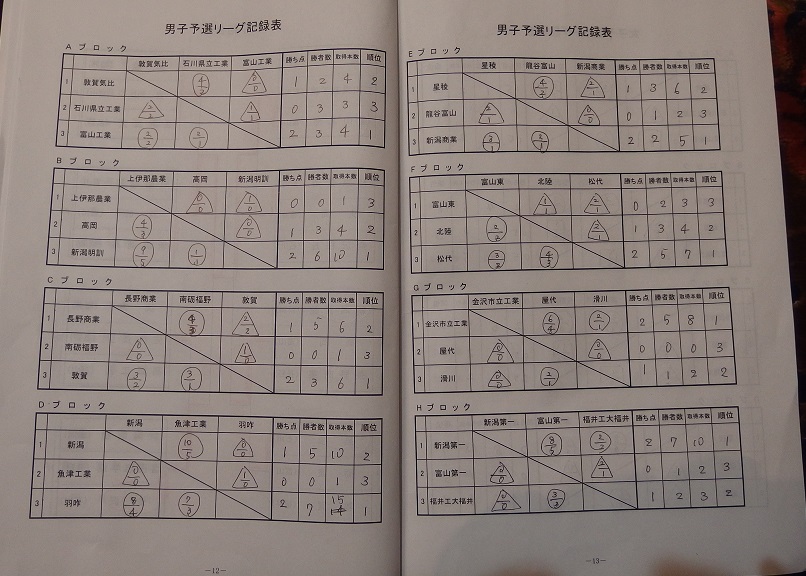 男子予選リーグ記録表
Aブロック
敦賀気比 石川県立工業 富山工業 勝ち点 勝者数 取得本数 順位
1 敦賀気比 4/2 0/0 1 2 4 2
2 石川県立工業 1/1 0 3 3 3
3 富山工業 2/2 2/1 2 3 4 1
Bブロック
上伊那農業 高岡 新潟明訓 勝ち点 勝者数 取得本数 順位
1 上伊那農業 0/0 1/0 0 0 1 3
2 高岡 4/3 0/0 1 3 4 2
3 新潟明訓 9/5 1/1 2 6 10 1
Cブロック
長野商業 南砺福野 敦賀 勝ち点 勝者数 取得本数 順位
1 長野商業 4/3 2/2 1 5 6 2
2 南砺福野 0/0 1/0 0 0 1 3
3 敦賀 3/2 3/1 2 3 6 1
Dブロック
新潟 魚津工業 羽咋 勝ち点 勝者数 取得本数 順位
1 新潟 10/5 0/0 1 5 10 2
2 魚津工業 0/0 1/0 0 0 1 3
3 羽咋 8/4 7/3 2 7 15 1
—12—
男子予選リーグ記録表
Eブロック
星稜 龍谷富山 新潟商業 勝ち点 勝者数 取得本数 順位
1 星稜 4/2 2/1 1 3 6 2
2 龍谷富山 2/1 0/0 0 1 2 3
3 新潟商業 3/1 2/1 2 2 5 1
Fブロック
富山東 北陸 松代 勝ち点 勝者数 取得本数 順位
1 富山東 1/1 2/1 0 2 3 3
2 北陸 2/2 2/1 1 3 4 2
3 松代 3/2 4/3 2 5 7 1
Gブロック
金沢市立工業 屋代 滑川 勝ち点 勝者数 取得本数 順位
1 金沢市立工業 6/4 2/1 2 5 8 1
2 屋代 0/0 0/0 0 0 0 3
3 滑川 0/0 2/1 1 1 2 2
Hブロック
新潟第一 富山第一 福井工大福井 勝ち点 勝者数 取得本数 順位
1 新潟第一 8/5 2/2 2 7 10 1
2 富山第一 0/0 2/1 0 1 2 3
3 福井工大福井 0/0 3/2 1 2 3 2
—13—